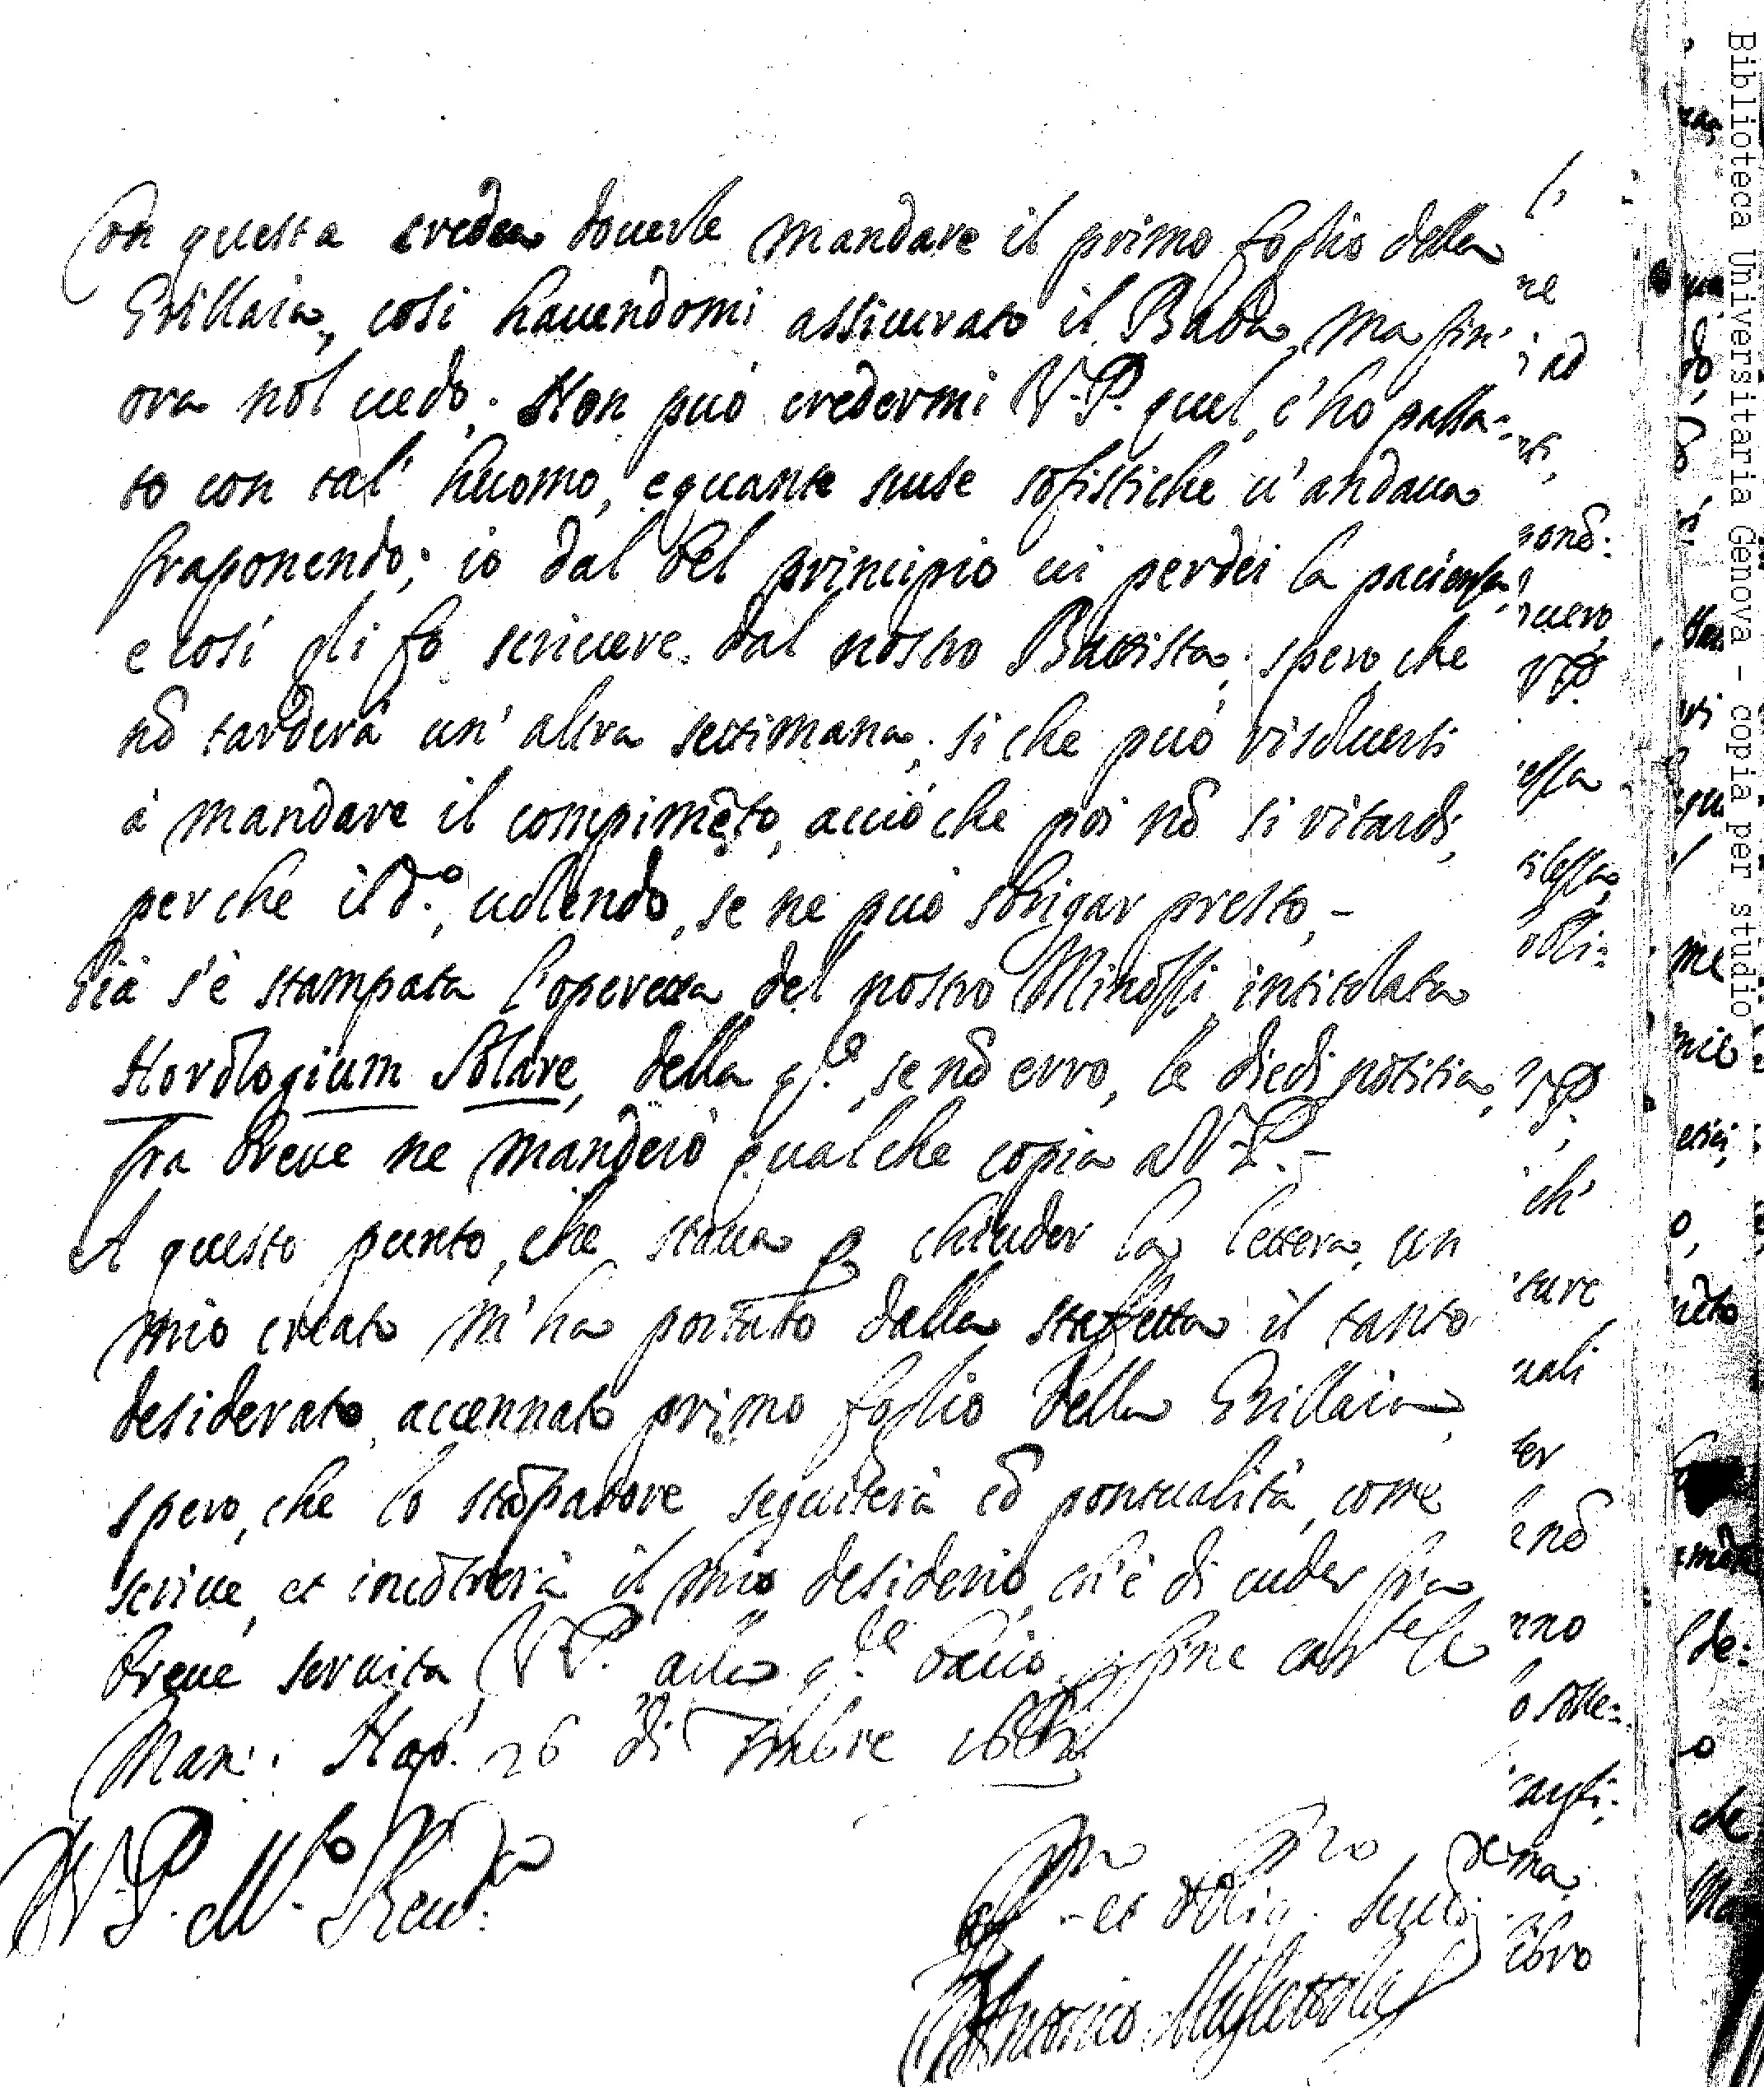 Con questa credea douerle mandare il primo foglio della
Grillaia, così hauendomi assicurato il Baba, ma fin'
ora nol uedo. Non può credermi V.P. quel, c'hò passa-
to con tal' huomo, e quante scuse sofistiche u'andaua
fraponendo; io dal bel principio ui perdei la pacienza,
e così gli fo scriuere dal nostro Battista; spero, che
nõ tarderà un' altra settimana, si che può risoluersi
à mandare il compimẽto, acciò che poi nõ si ritardi,
perche il d.o, uolendo, se ne può sbrigar presto,-
Già s'è stampata l'operetta del nostro Minossi intitolata
Horologium Solare, della q.le, se nõ erro, le diedi notitia,
fra breue ne manderò qualche copia a V.P.-
A questo punto, che staua p chiuder la lettera, un
mio creato m'ha portato dalla staffetta il tanto
desiderato, accennato primo foglio della Grillaia,
spero, che lo stãpatore seguiterà cõ pontualità, come
scriue, et incõtrerà il mio desiderio, ch'è di ueder fra
breue seruita V.P. alla q.le bacio p fine car.te le
Man:. Nap. 26 di 7mbre
V.P. M.to Reu.da
et oblig. Seru.
Antonio Muscettola
ne
ad
nonõ:
V.P.
essa
obli-
V.P.
ch'
ture
uali
ter
nõ
nno
ma
ibro
me
mie
o,
lde:
o
che
Biblioteca Universitaria Genova - copia per studio